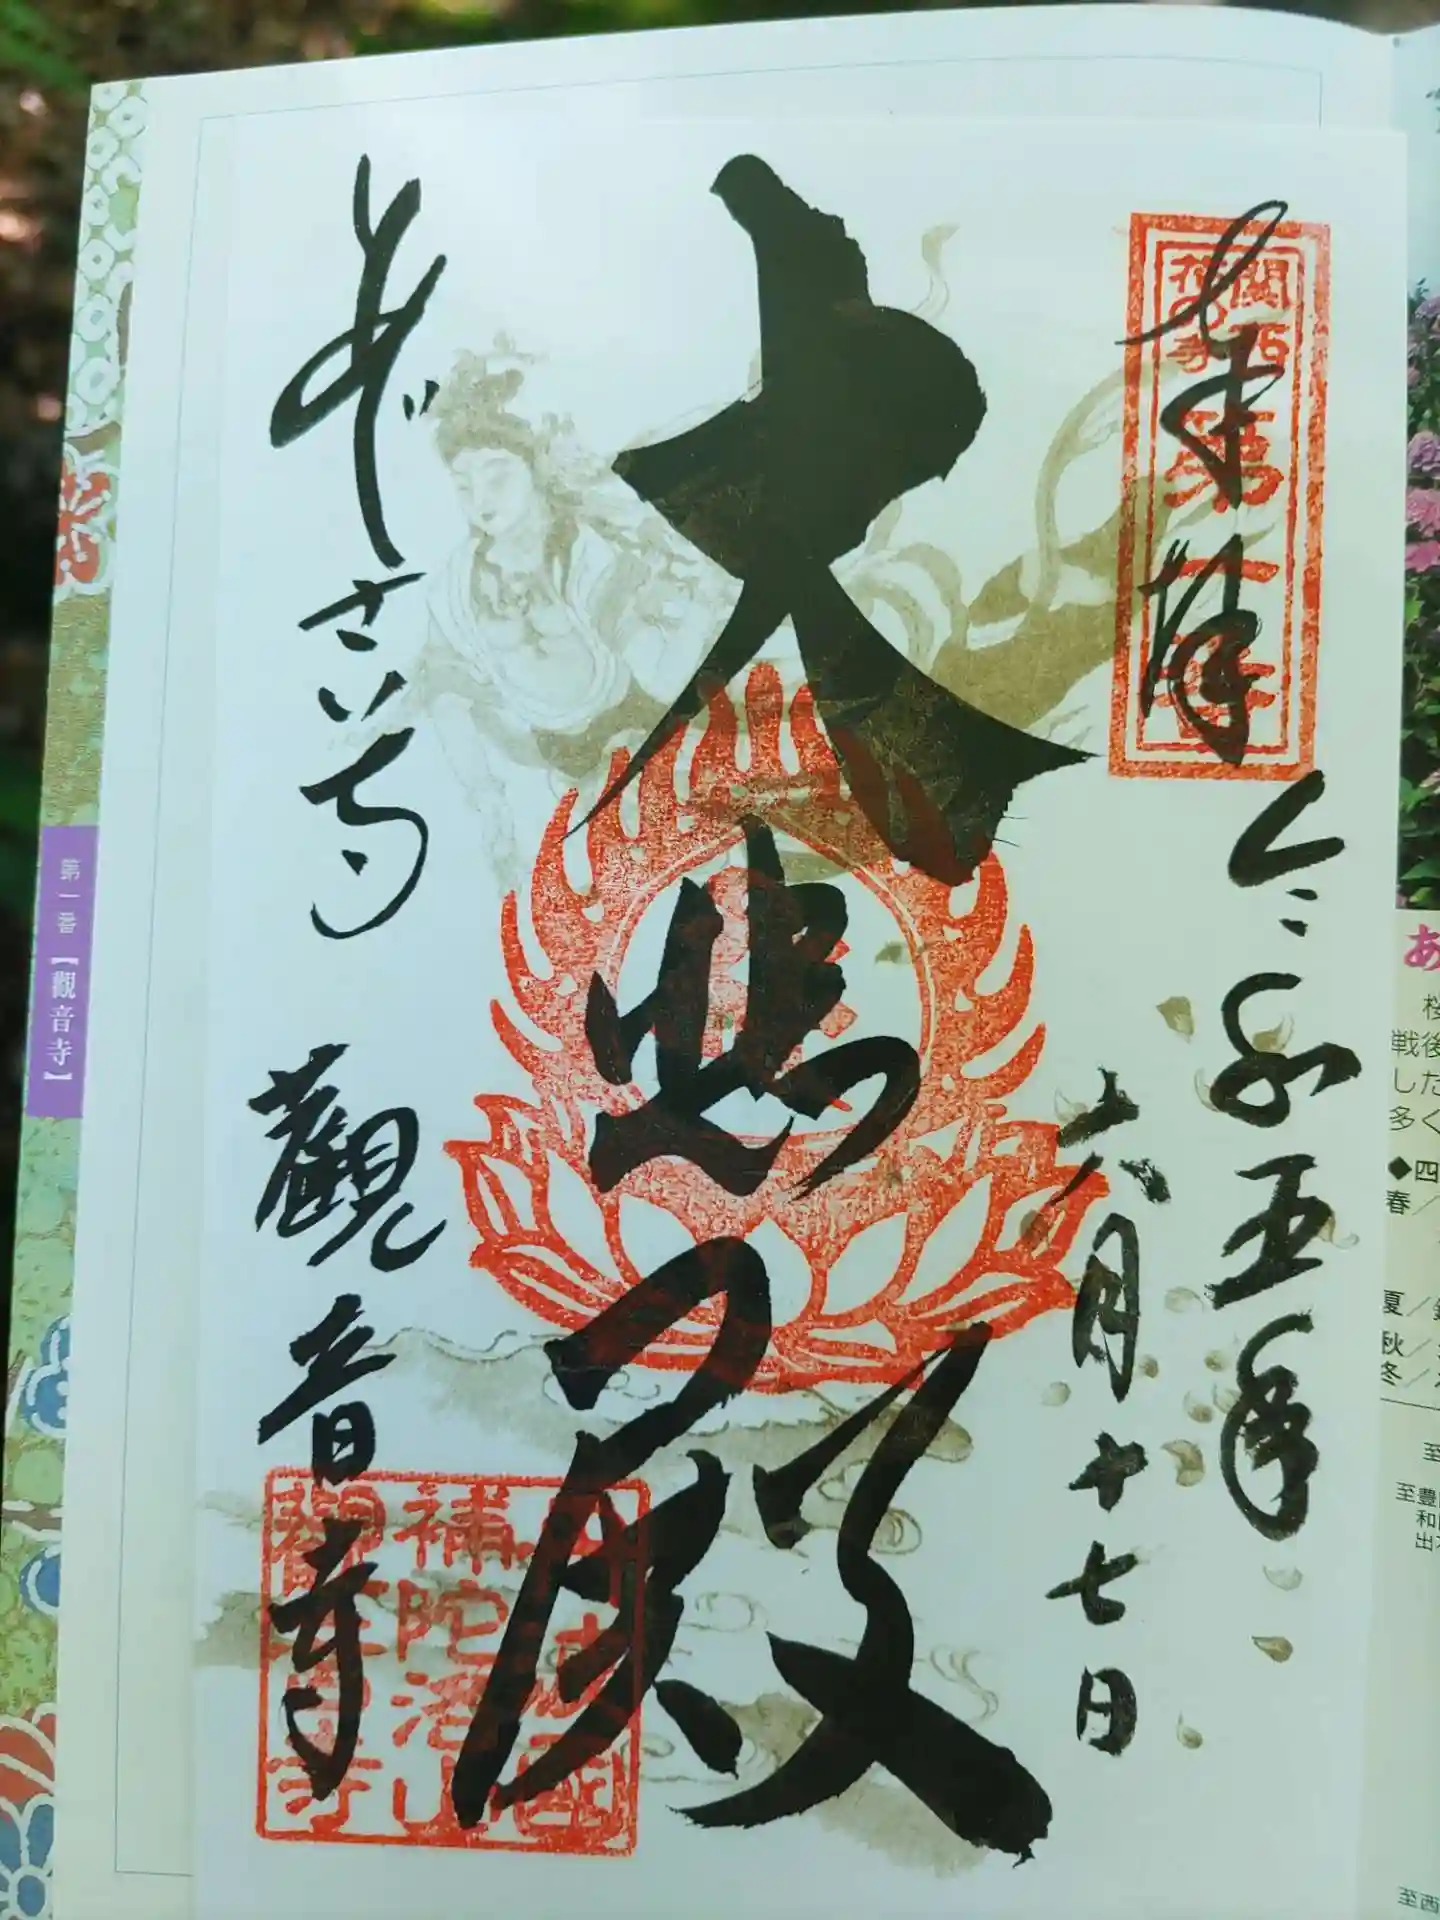 奉拝
関西
花の寺
第一番
令和五年
六月十七日
大悲殿
あぢさい寺
觀音寺
丹波國
補陀洛山
觀音寺
第一番【觀音寺】
あ
桜
戦後
した
多く
◆四
春／
夏／
秋／
冬／
至
至豊
和
出
至西